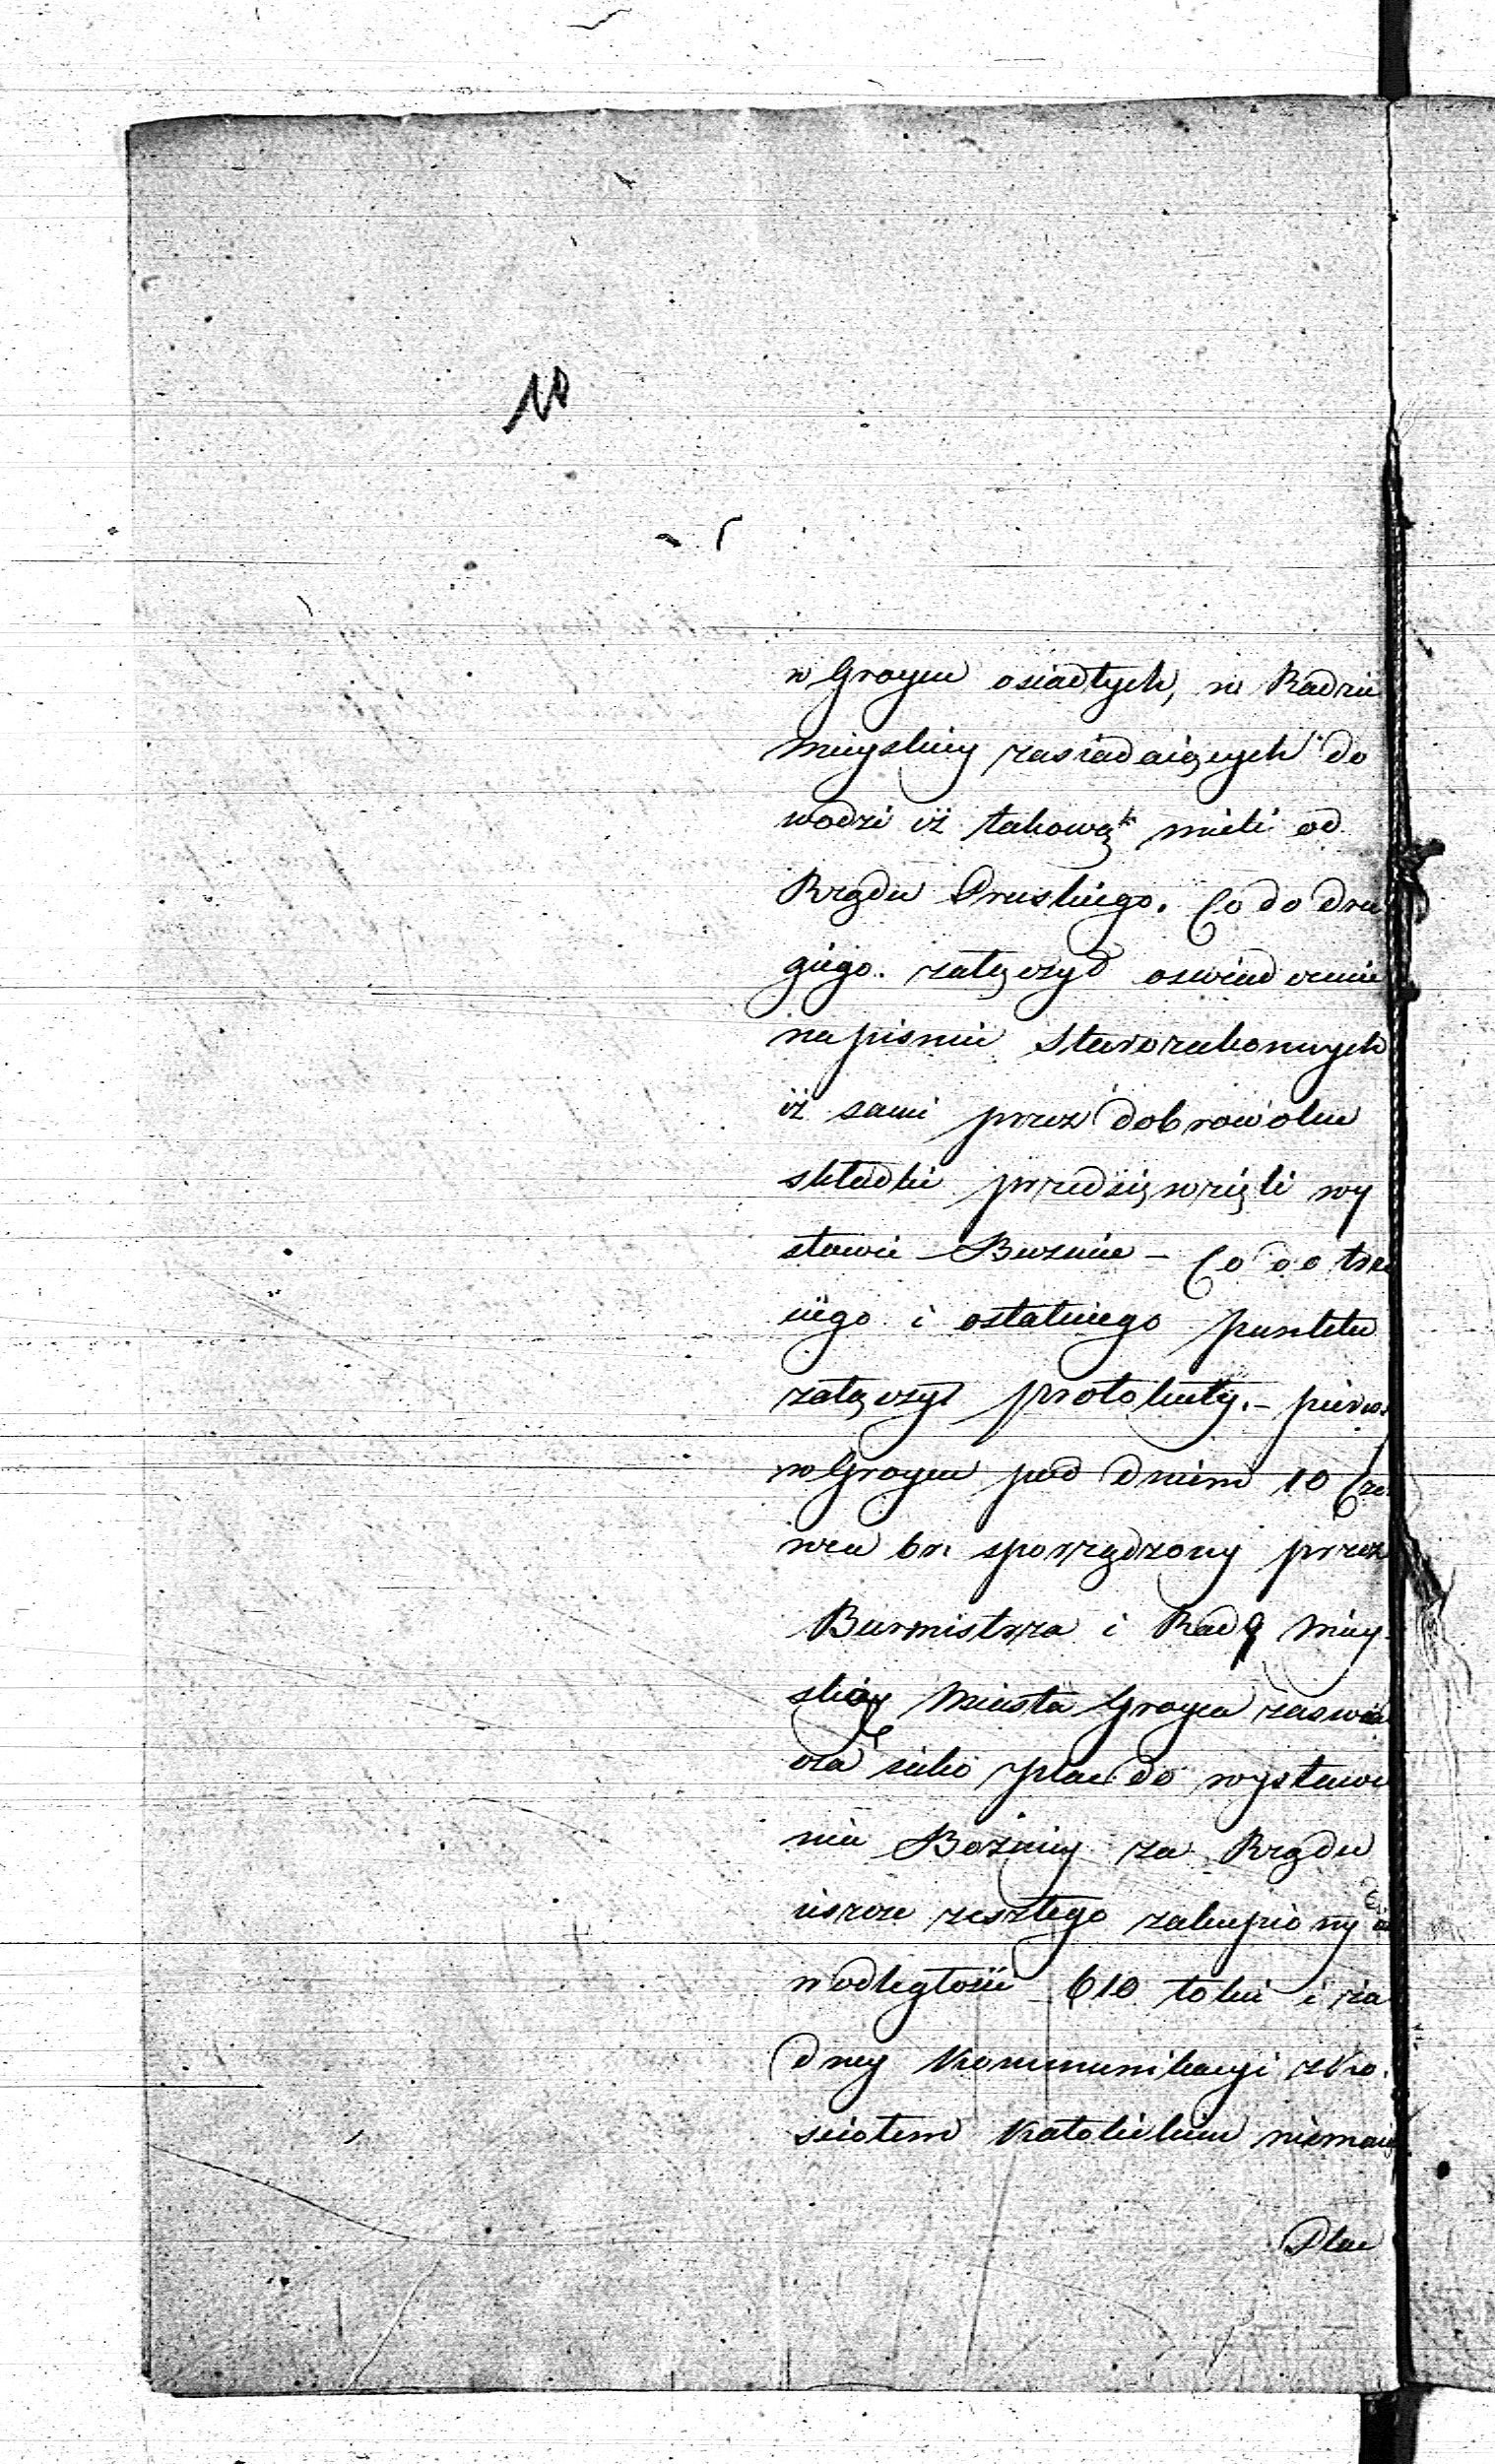 10
w Groycu osiadłych, w Radzie
mieyskiey zasiadaiących do
wodzi iż takową mieli od
Rządu Pruskiego. Co do dru
giego. załączył oswiadczenie
na pismie Starozakonnych
iż sami przez dobrowolne
składki przedsięwzięli wy
stawić Bużnice – Co do trze
ciego i ostatniego punktu
załączył protokuły. – pierw
w Groycu pod dniem 10 Cze
wca br. sporządzony przez
Burmistrza i Radę miey
skią Miasta Groyca zaswiad
cza iako plac do wystawie
nia Bożnicy za Rządu
ieszcze zeszłego zakupiony
w odległości 610 łokci i ża
dney Kommunikacyi z Ko
sciołem Katolickim niemaią
Plac